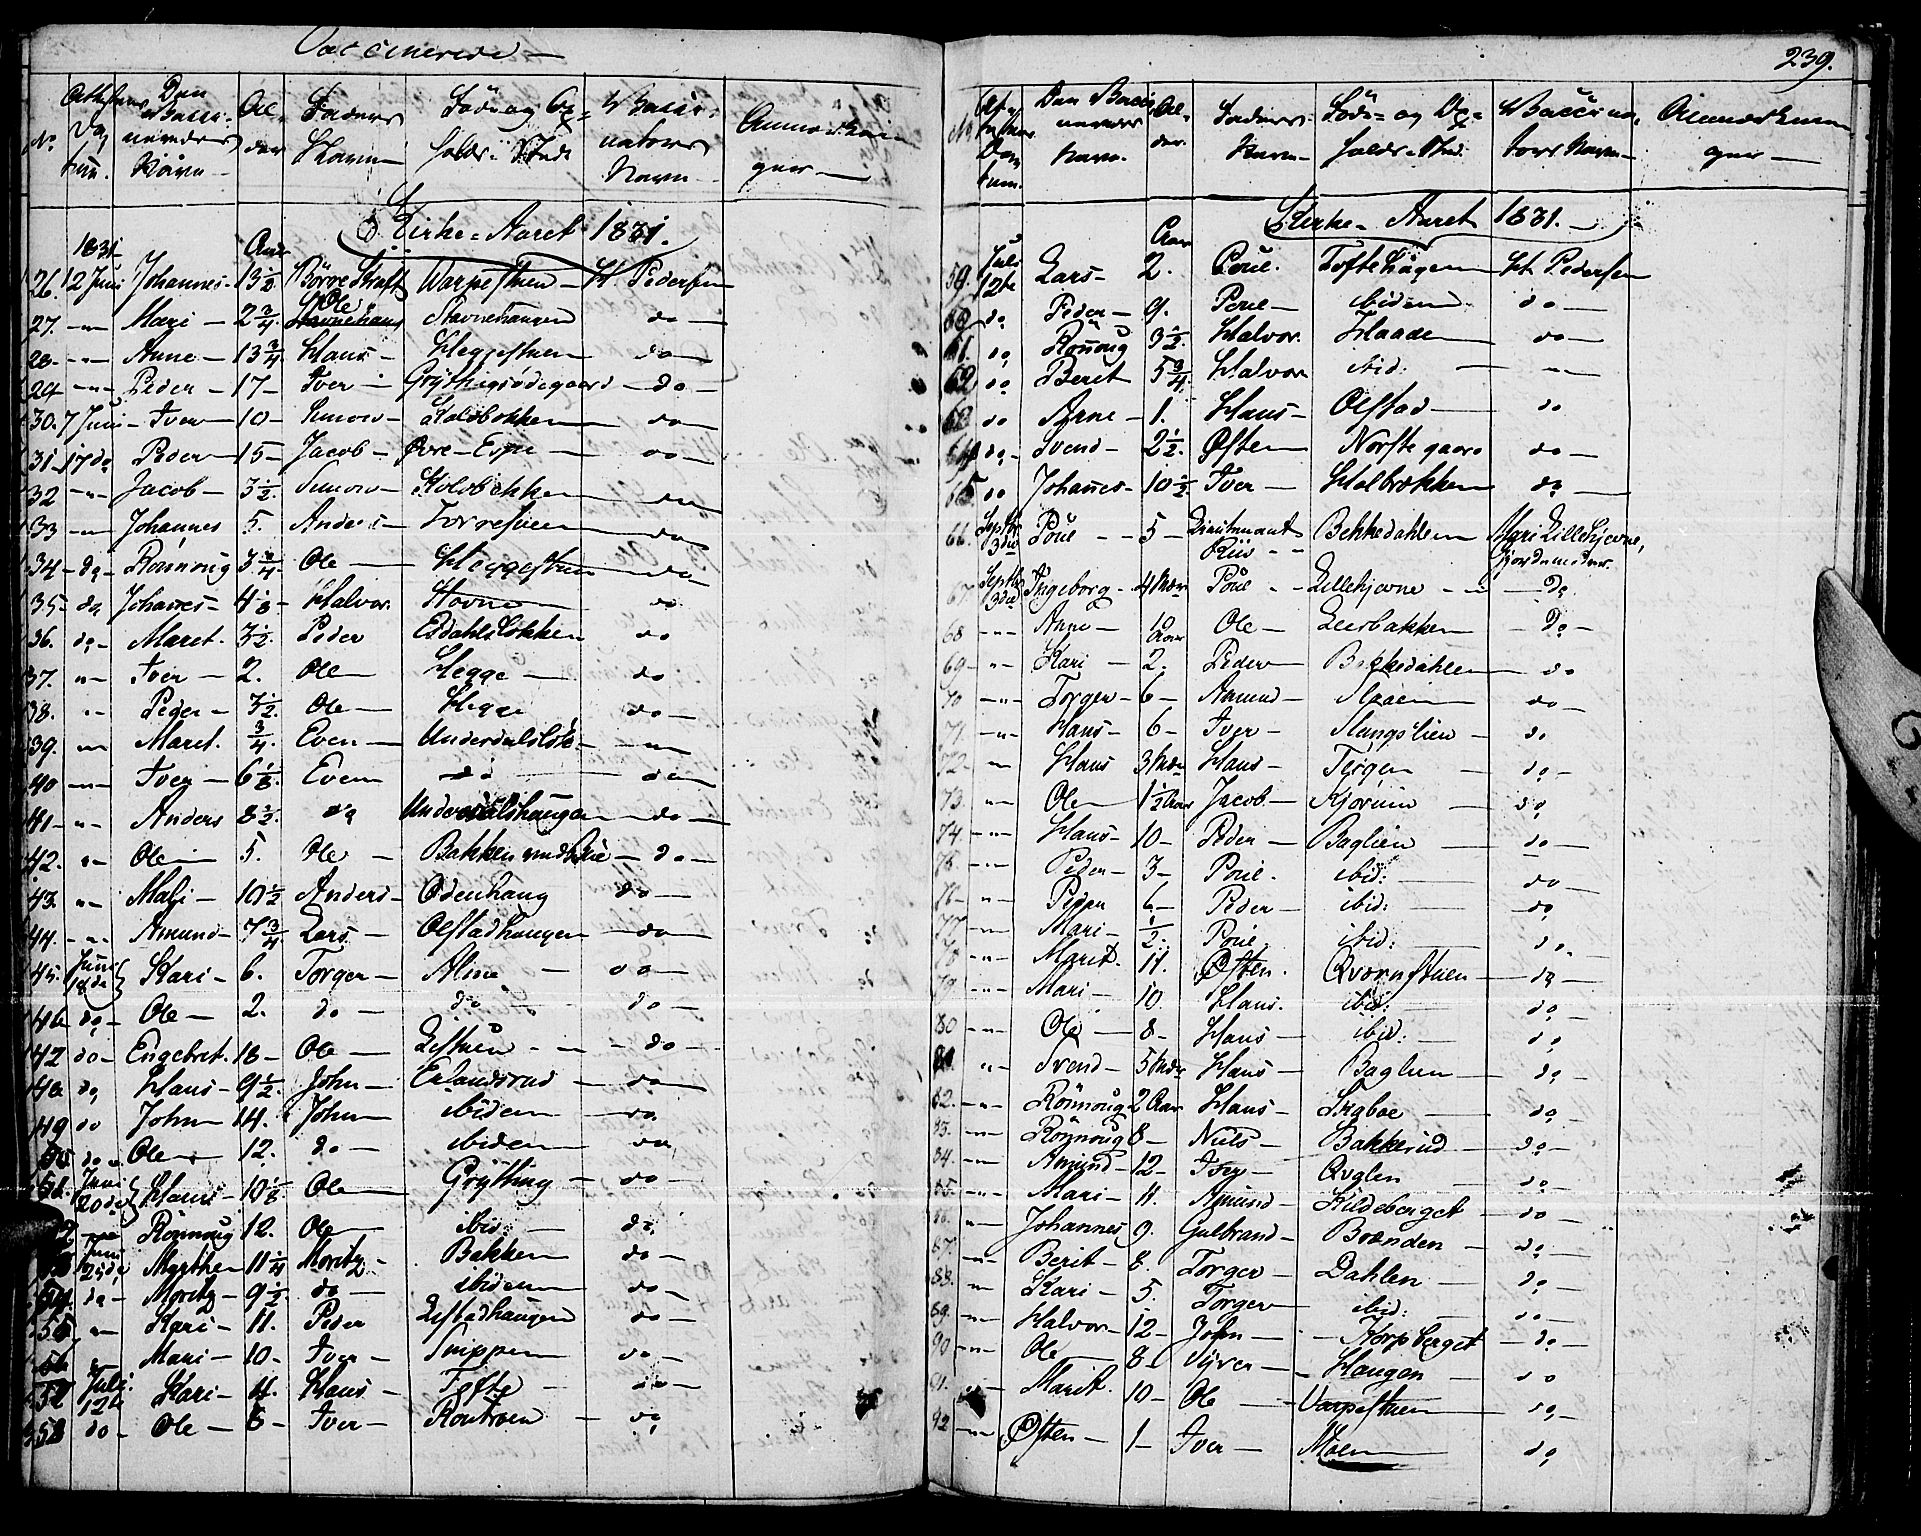 Vaccinerede
No. | Attestens Datum. | Den Vaccineredes Navn | Alder | Faders Navn | Føde- og Opholds-Sted | Vaccinatorens Navn | Anmærkninger
Kirke-Aaret 1831.
1831 Aar
26. 12 Juni Johannes 13 1/2 Warpestuen H. Pedersen
27. -"- Mari 2 3/4 Ole Stavnehaugen do
28. -"- Anne 13 3/4 Hans Heggestuen do
29 -"- Peder 17 Iver Grythingsødegaard do
30. 7 Juni Iver 10 Simon Koldbekken do
31 17 do Peder 15 Jacob Øvre-Espe do
32 -"- Jacob 3 1/2 Simon Kolbekken do
33 -"- Johannes 5. Anders do
34 do Rönnoug 3 3/4 Ole Heggestuen do
35 do Johannes 4 1/8 Halvor Stovne do
36. do Maret 3 1/2 Peder Esdahlsløkken do
37. " Iver 2. Ole Hegge do
38. " Peder 3 1/2 Ole Hegge do
39. " Maret. 3/4 Even Underdalsløk "
40 -"- Iver 6 1/2 Even do do
41 " Anders 8 1/2 do Underdalshaugen do
42. " Ole 5. Ole Bakken do
43. " Mali 10 1/2 Anders Odenhaug do
44. -"- Amund 7 3/4 Lars Olstadhaugen do
45. Juni 18de Kari 6. Torger Alme do
46 do Ole 2. do do do
47 do Engebret 18 Ole Listuen do
48 do Hans 9 1/2 John Erlandsrud do
49 do John 14. John ibidem do
50 do Ole 12. do ibidem do
51. Juni 20de Hans 10 1/8 Ole Gryting do
52 Rönnoug 12. Ole ibid. do
53 Juni Myrthe 11 1/4 Moritz Bakken do
54 do Moritz 9 1/2 do ibidem do
55 " Kari 11. Peder Listadhaugen do
56 " Mari 10 Iver Snippen do
57 Juli 12te Kari 4. Hans Tofte do
58 do Ole 6 Iver do
239.
No | Attestens Datum. | Den Vaccineredes Navn. | Alder. | Faders Navn | Føde- og Opholds-Sted. | Vaccinatorens Navn | Anmærkninger
Kirke-Aaret 1831.
Aar
59. Juli 12te Lars 2. Poul. Toftehagen H. Pedersen
60 do Peder 9. Poul ibidem do
61. do Rönnoug 3 1/2 Halvor. Haaden do
62 do Beret 5 3/4 Halvor ibid: -"-
63 do Anne 1. Hans Olstad do
64 do Svend 2 1/2. Østen Norstegaard do
65 do Johannes 10 1/2 Iver Holbrækken do
66. Septbr 3die Poul 5 Lieutenant Riis Bekkedahlen Mari Lillehjevne, Gjordemoder.
67 Septbr 3die Ingeborg 4 Mdr Poul Lillehjevne do
68 -"- Anne 10 Aar Ole Leerbakken do
69 -"- Kari 2. Peder Bekkedahlen do
70 -"- Torger 6 Amund Slaaen do
71 -"- Hans 6 Iver Slangslien do
72 " Hans 3 Mdr Hans Teigen do
73. " Ole 1 1/2 Aar Jacob Kjorum do
74. -"- Hans 10 Peder Baglien do
75 -"- Peder 3 Poul. ibid: do
76 -"- Peder 6 Peder ibid: do
77 -"- Mari 1/2. Poul ibid: do
78 -"- Marit. 11. Østen. Qværnstuen do
79 -"- Mari 10 Hans. ibid: do
80 -"- Ole 8 Hans ibid: do
81. " Svend 5 Mdr Hans Baglien do
82. -"- Rönnoug 2 Aar Hans do
83. -"- Rönnoug 8 Niels Bakkerud do
84. -"- Amund 12 Iver do
85. -"- Mari 11. Amund Kildeberget do
86. " Johannes 9. Gulbrand Brænden do
87. -"- Berit 8. Torger Dahlen do
88. " Kari 5. Torger ibid: do
89. -"- Halvor 12 John Korpberget do
90 -"- Ole 8 Syver Haugen do
91. -"- Marit. 10 Ole Varpestuen do
92 -"- Østen 1 Iver Moen do